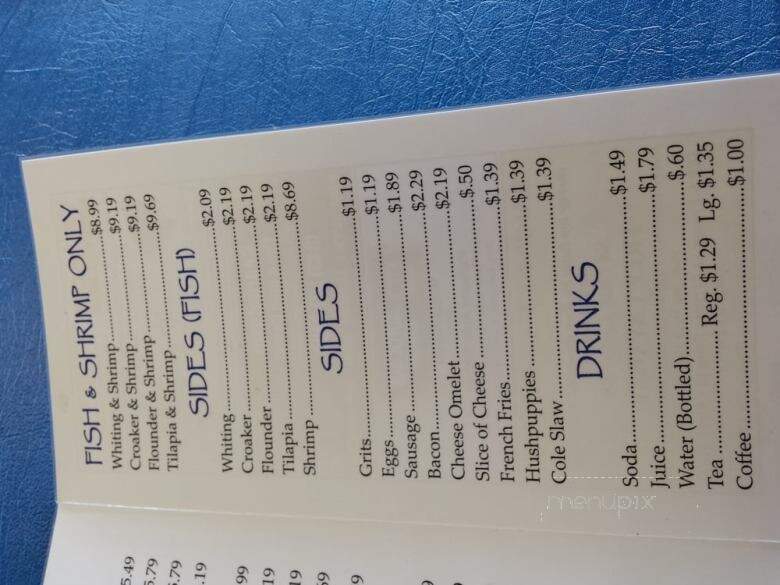 FISH & SHRIMP ONLY
Whiting & Shrimp..........$8.99
Croaker & Shrimp..........$9.19
Flounder & Shrimp..........$9.19
Tilapia & Shrimp..........$9.69
SIDES (FISH)
Whiting..........$2.09
Croaker..........$2.19
Flounder..........$2.19
Tilapia..........$2.19
Shrimp..........$8.69
SIDES
Grits..........$1.19
Eggs..........$1.19
Sausage..........$1.89
Bacon..........$2.29
Cheese Omelet..........$2.19
Slice of Cheese..........$.50
French Fries..........$1.39
Hushpuppies..........$1.39
Cole Slaw..........$1.39
DRINKS
Soda..........$1.49
Juice..........$1.79
Water (Bottled)..........$.60
Tea.......... Reg. $1.29 Lg. $1.35
Coffee..........$1.00
5.49
5.79
5.79
.19
99
19
19
menupix